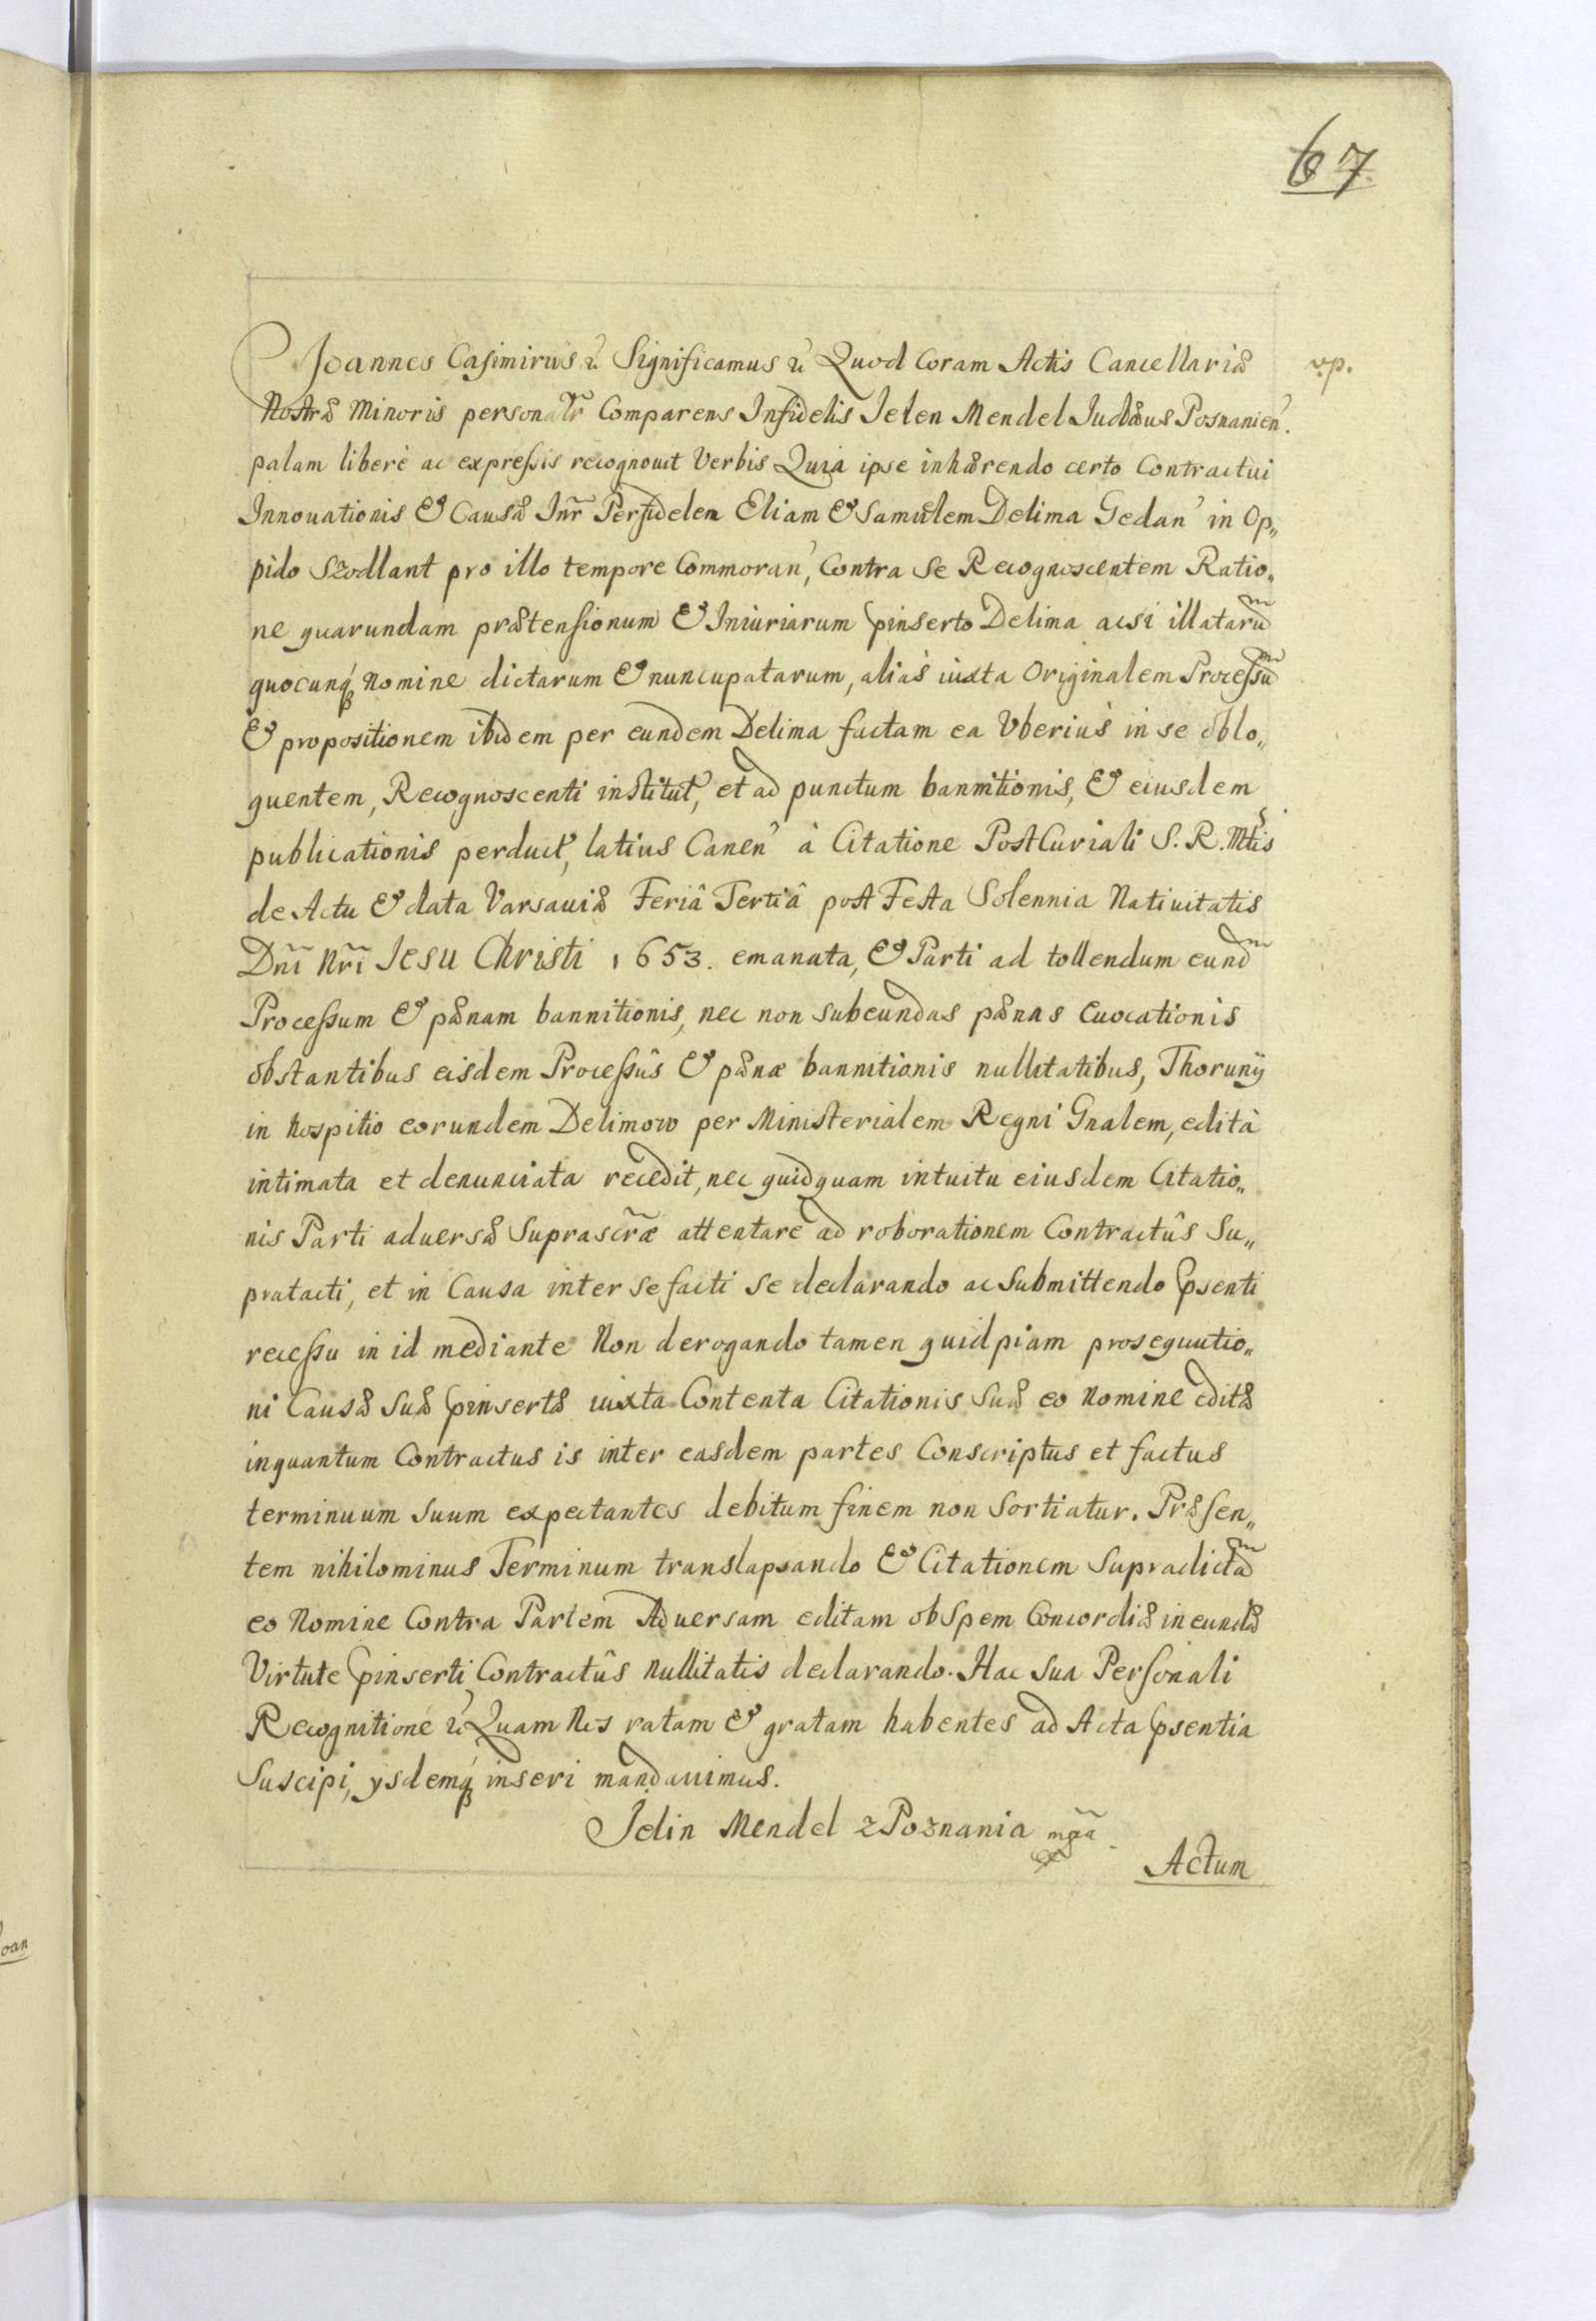 67
Joannes Casimirus &c Significamus &c Quod Coram Actis Cancellariæ
v.p.
Nostræ Minoris personalr̃ Comparens Infidelis Jelen Mendel Judæus Posnanien̉.
palam liberè ac expressis recognovit Verbis Quia ipse inhærendo certo Contractui
Innouationis & Causæ Inr̃ Perfidelem Eliam & Samuelem Delima Gedan̉ in Op„
pido Szodlant pro illo tempore Commoran̉, Contra Se Recognoscentem Ratio„
ne quarundam prætensionum & Iniuriarum pinserto Delima acsi illatarum
quocunq́ȝ Nomine dictarum & nuncupatarum, aliàs iuxta Originalem Processum
& propositionem ibidem per eundem Delima factam ea Vberiùs in se oblo„
quentem, Recognoscenti institut̉, et ad punctum bannitionis, & eiusdem
publicationis perduct̉, latius Canen̉ à Citatione PostCuriali S. R. Mtis
de Actu & data Varsauiæ Feriâ Tertiâ post Festa Solennia Natiuitatis
Dñi Nrĩ Jesu Christi 1653. emanata, & Parti ad tollendum eundm
Processum & pænam bannitionis, nec non subeundas pænas Euocationis
obstantibus eisdem Processûs & pænæ bannitionis nullitatibus, Thorunÿ
in hospitio eorundem Delimow per Ministerialem Regni Gnalem, edità
intimata et denunciata recedit, nec quidquam intuitu eiusdem Citatio„
nis Parti aduersæ Suprascr̃æ attentare ad roborationem Contractûs Su„
pratacti, et in Causa inter se facti se declarando ac submittendo psenti
recessu in id mediante Non derogando tamen quidpiam prosequutio„
ni Causæ Suæ pinsertæ iuxta Contenta Citationis Suæ eo Nomine editæ
inquantum Contractus is inter easdem partes Conscriptus et factus
terminuum suum expectantes debitum finem non Sortiatur. Præsen„
tem nihilominus Terminum translapsando & Citationem Supradictam
eo Nomine Contra Partem Aduersam editam ob Spem Concordiæ ineundæ
Virtute pinserti Contractûs Nullitatis declarando. Hac Sua Personali
Recognitione &c Quam Nos ratam & gratam habentes ad Acta psentia
Suscipi, ysdemq́ȝ inseri mandauimus.
Jelin Mendel z Poznania mp̃a
Actum
oan